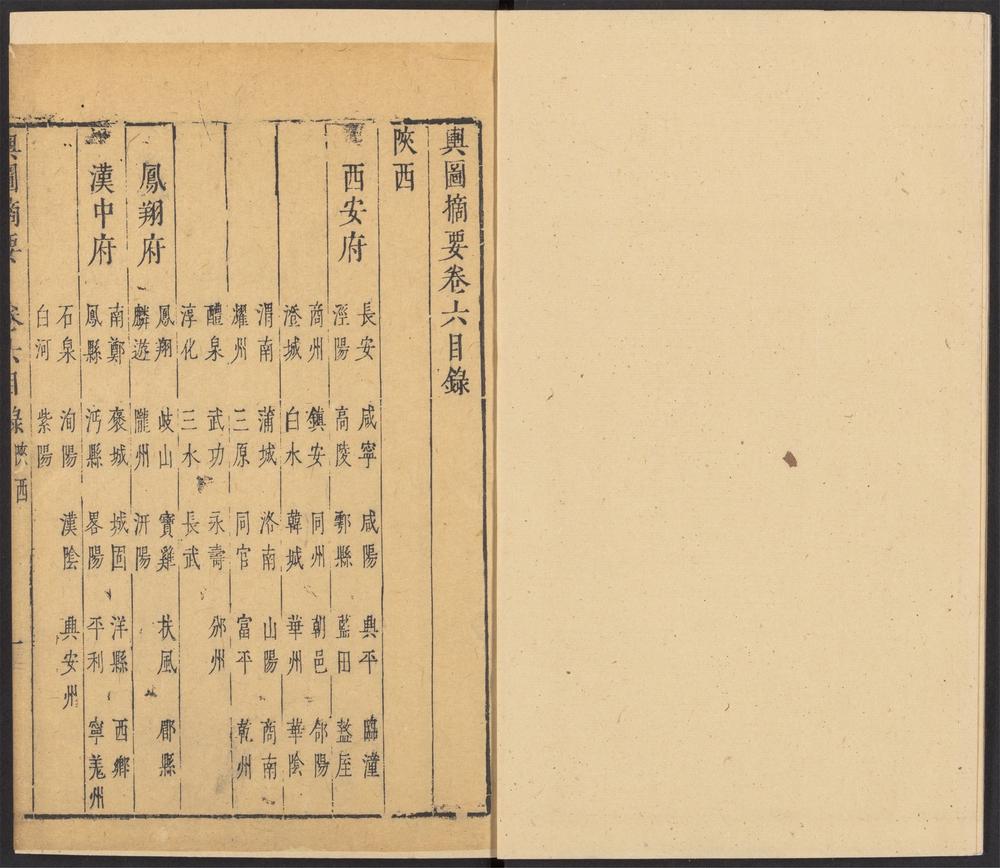 輿圖摘要卷六目錄
陝西
西安府
長安 咸寧 咸陽 典平 臨潼
涇陽 高陵 鄠縣 藍田 盩厔
商州 鎮安 同州 朝邑 郃陽
澄城 白水 韓城 華州 華陰
渭南 蒲城 洛南 山陽 商南
耀州 三原 同官 富平 乾州
醴泉 武功 永壽 邠州
淳化 三水 長武
鳳翔府
鳳翔 岐山 寶雞 扶風 郿縣
麟遊 隴州 汧陽
漢中府
南鄭 褒城 城固 洋縣 西鄉
鳳縣 沔縣 畧陽 平利 寧羗州
石泉 洵陽 漢陰 典安州
白河 紫陽
輿圖摘要 卷六目錄 陝西 一